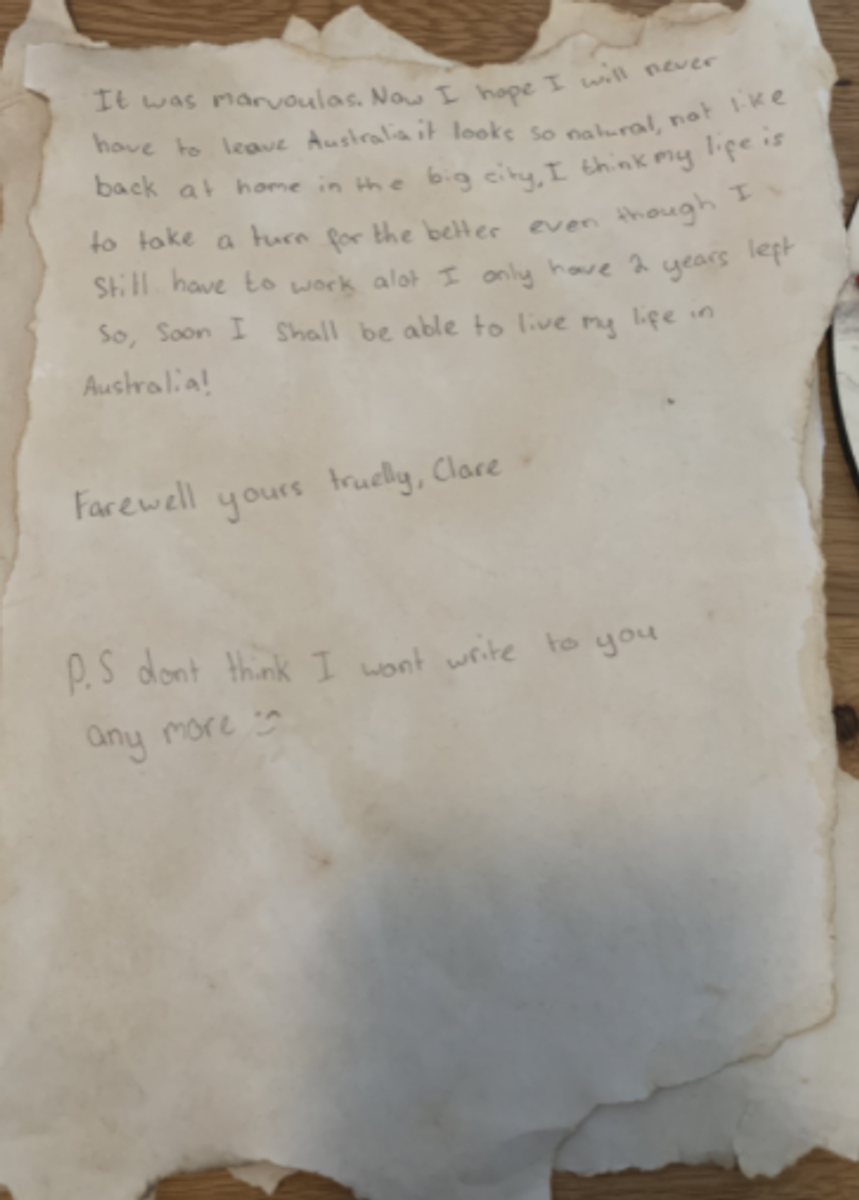 It was marvoulas. Now I hope I will never
have to leave Australia it looks so natural, not like
back at home in the big city, I think my life is
to take a turn for the better even though I
Still have to work alot I only have 2 years left
So, Soon I Shall be able to live my life in
Australia!
Farewell yours truelly, Clare
P.S dont think I wont write to you
any more :)